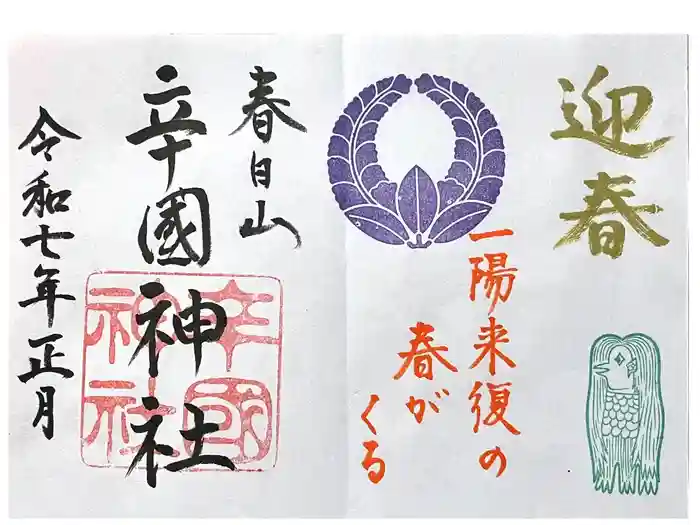 迎春
一陽来復の
春が
くる
春日山
辛國神社
辛國
神社
令和七年正月